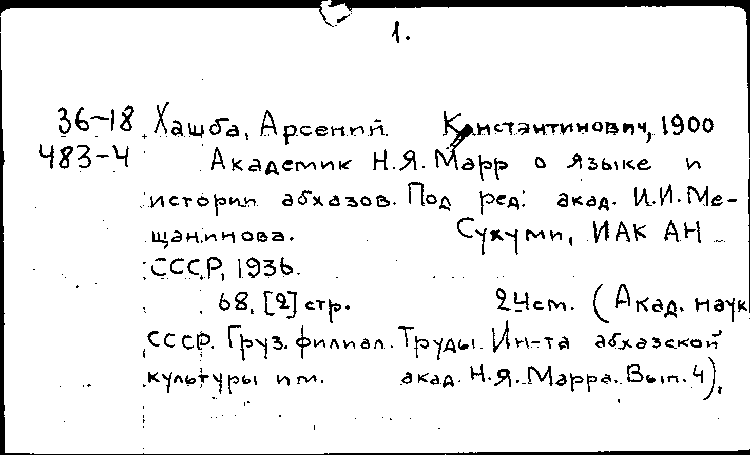 1.
36-18 Хашба, Арсений Константинович, 1900
483-4 Академик Н.Я. Марр о языке и
истории абхазов. Под ред: акад. И.И. Ме-
щанинова. Сухуми, ИАК АН
СССР, 1936.
68, [2] стр. 24 cm. (Акад. наук
СССР. Груз. филиал. Труды. Ин-та абхазской
культуры им. акад. Н.Я. Марра. Вып. 4).